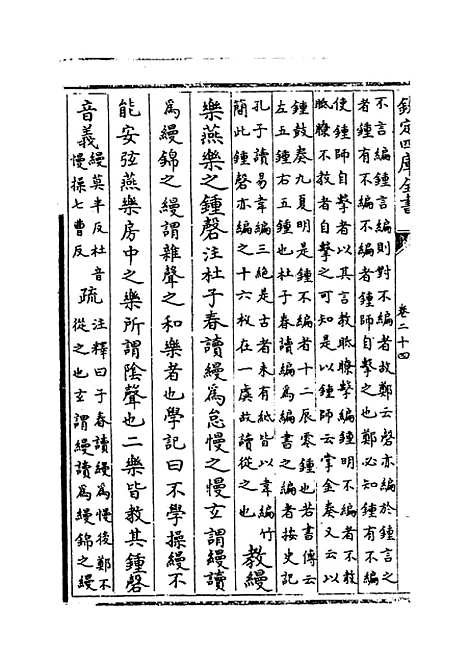 欽定四庫全書
卷二十四
不言編鍾言編則對不編者故鄭云磬亦編於鍾言之
者鍾有不編不編者鍾師自擊之也鄭必知鍾有不編
使鍾師自擊者以其言教眡瞭擊編鍾明不編者不教
眡瞭不教者自擊之可知是以鍾師云掌金奏又云以
鍾鼓奏九夏明是鍾不編者十二辰零鍾也若書傳云
左五鍾右五鍾也杜子春讀編為編書之編者按史記
孔子讀易韋編三絶是古者未有紙皆以韋編竹
簡此鍾磬亦編之十六枚在一虡故讀從之也
教縵
樂燕樂之鍾磬注杜子春讀縵為怠慢之慢玄謂縵讀
為縵錦之縵謂雜聲之和樂者也學記曰不學操縵不
能安弦燕樂房中之樂所謂陰聲也二樂皆教其鍾磬
音義
縵莫半反杜音
慢操七曹反
疏
注釋曰子春讀縵為慢後鄭不
從之也玄謂縵讀為縵錦之縵